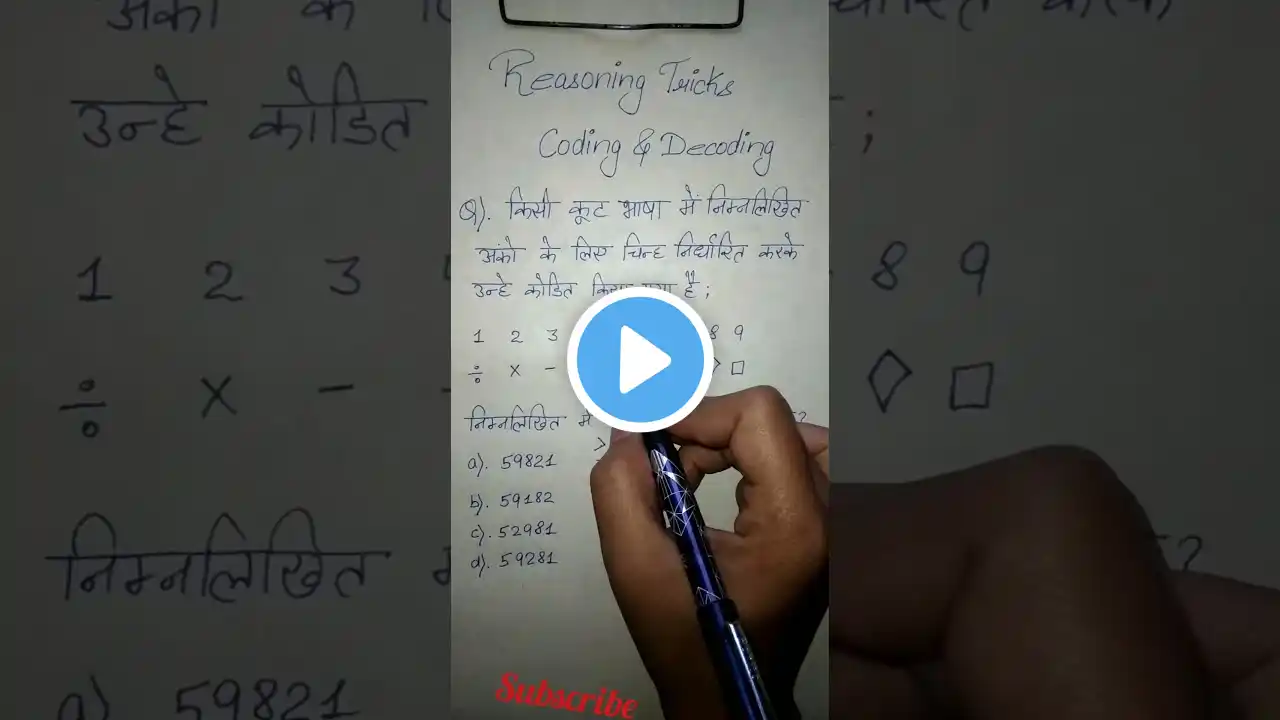 Reasoning Tricks
Coding & Decoding
Q). किसी कूट भाषा में निम्नलिखित
अंको के लिए चिन्ह निर्धारित करके
उन्हे कोडित है ;
1 2 3 8 9
÷ × - □
निम्नलिखित में ?
a). 59821
b). 59182
c). 52981
d). 59281
Subscribe